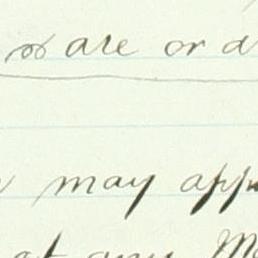 or are or a
may app
at any M